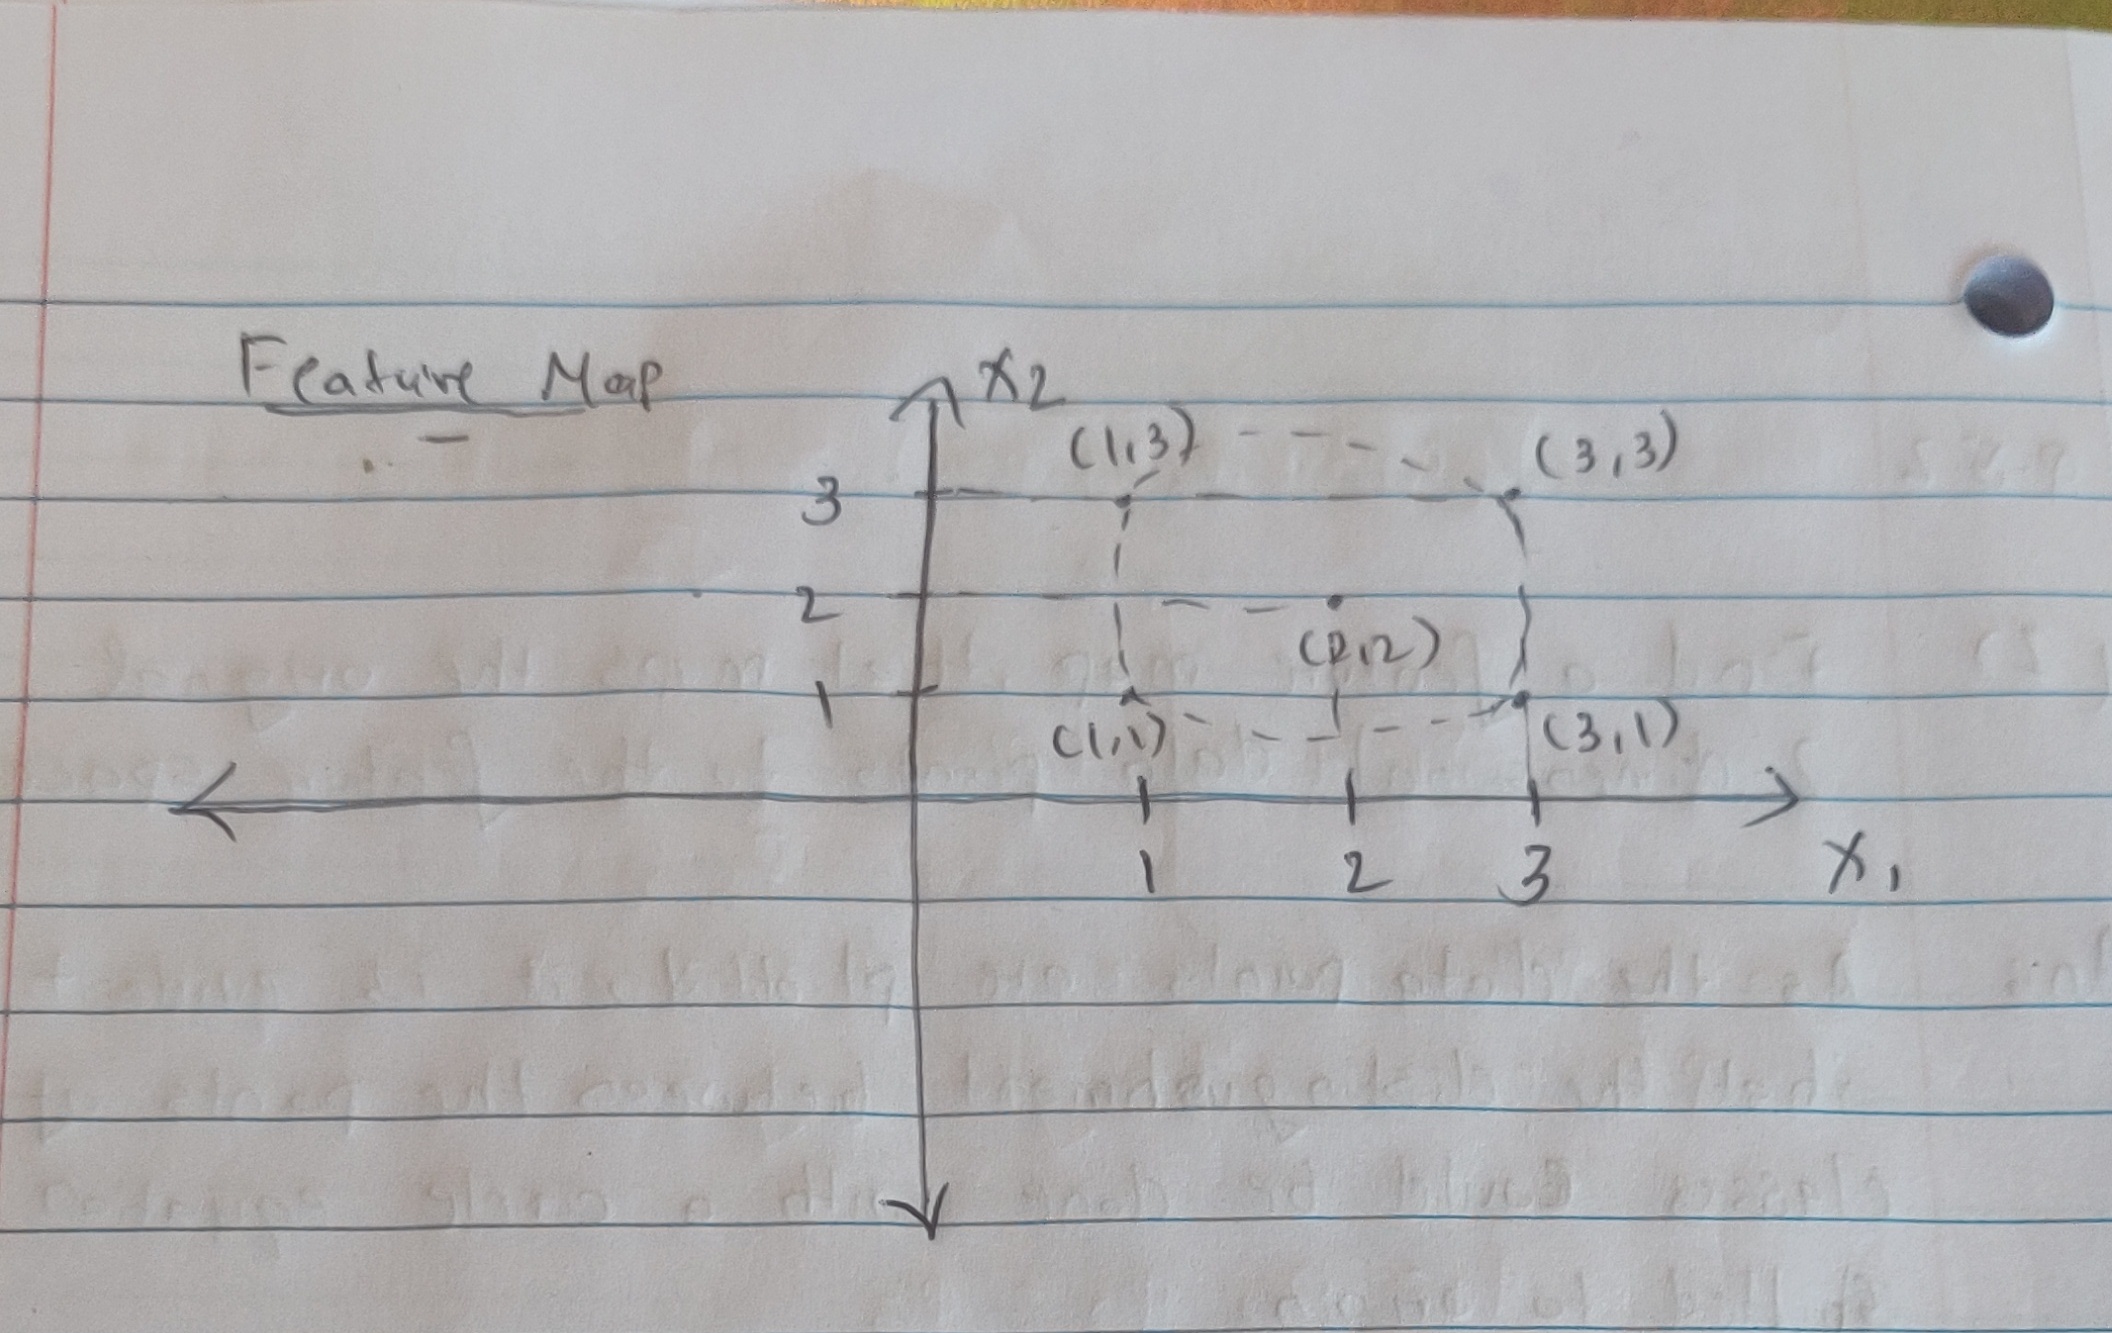 Feature Map
X2
(1,3)
(3,3)
3
2
(2,2)
1
(1,1)
(3,1)
1 2 3
X1